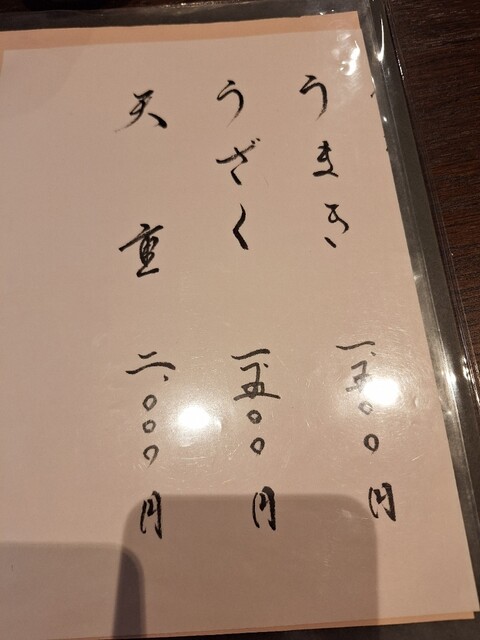 うまき 一、五〇〇円
うざく 一、五〇〇円
天重 二、〇〇〇円